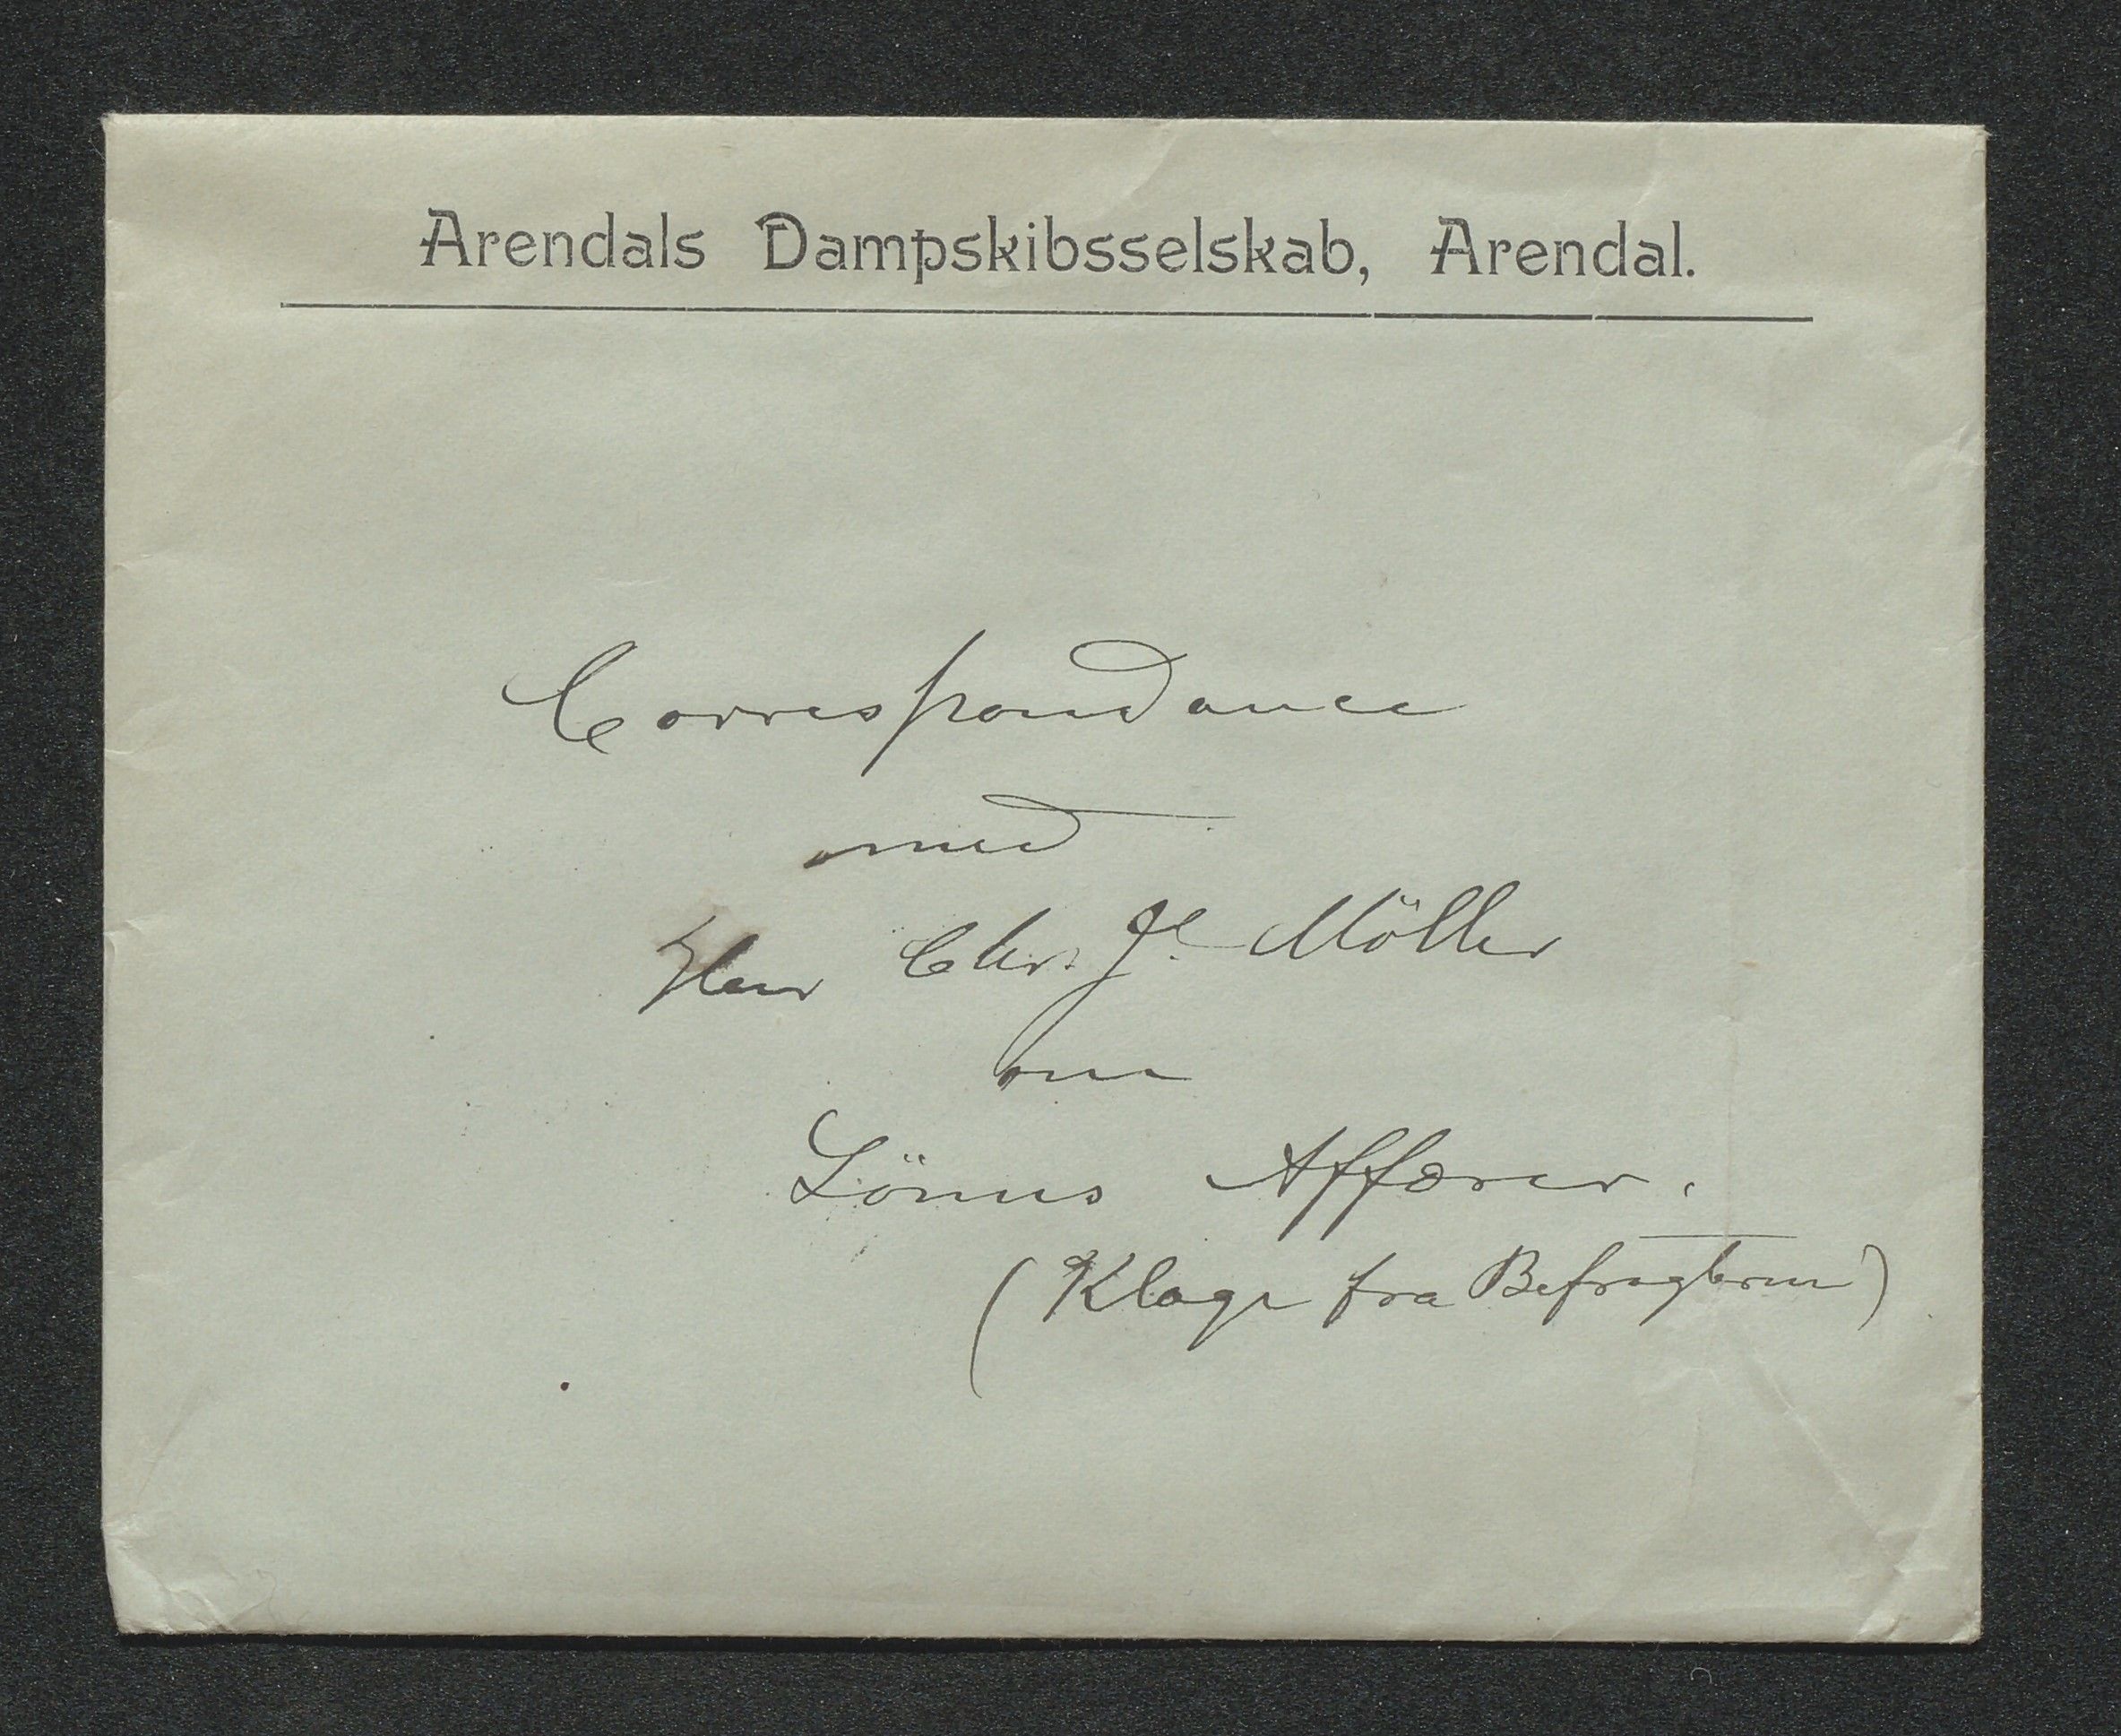 Arendals Dampskibsselskab, Arendal.
Correspondance
med
Herr Chr. Jl. Möller
om
Lönns Affærer.
(Klage fra Befragteren)